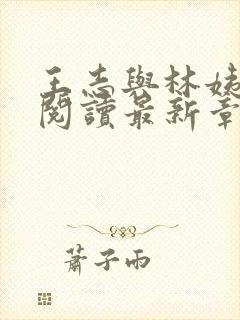 王志與林姨
閱讀最新章
蕭子雨